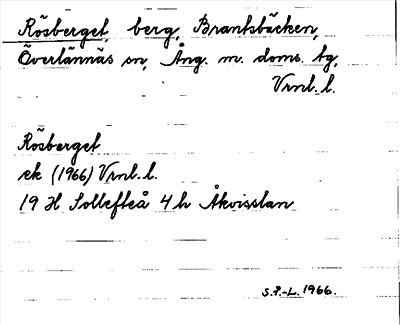 Rösberget, berg, Brantsbäcken,
Överlännäs sn, Ång. m. doms. tg,
Vrnl. l.
Rösberget
ek (1966) Vrnl. l.
19 H Sollefteå 4 h Åkvisslan
S.P.-L. 1966.